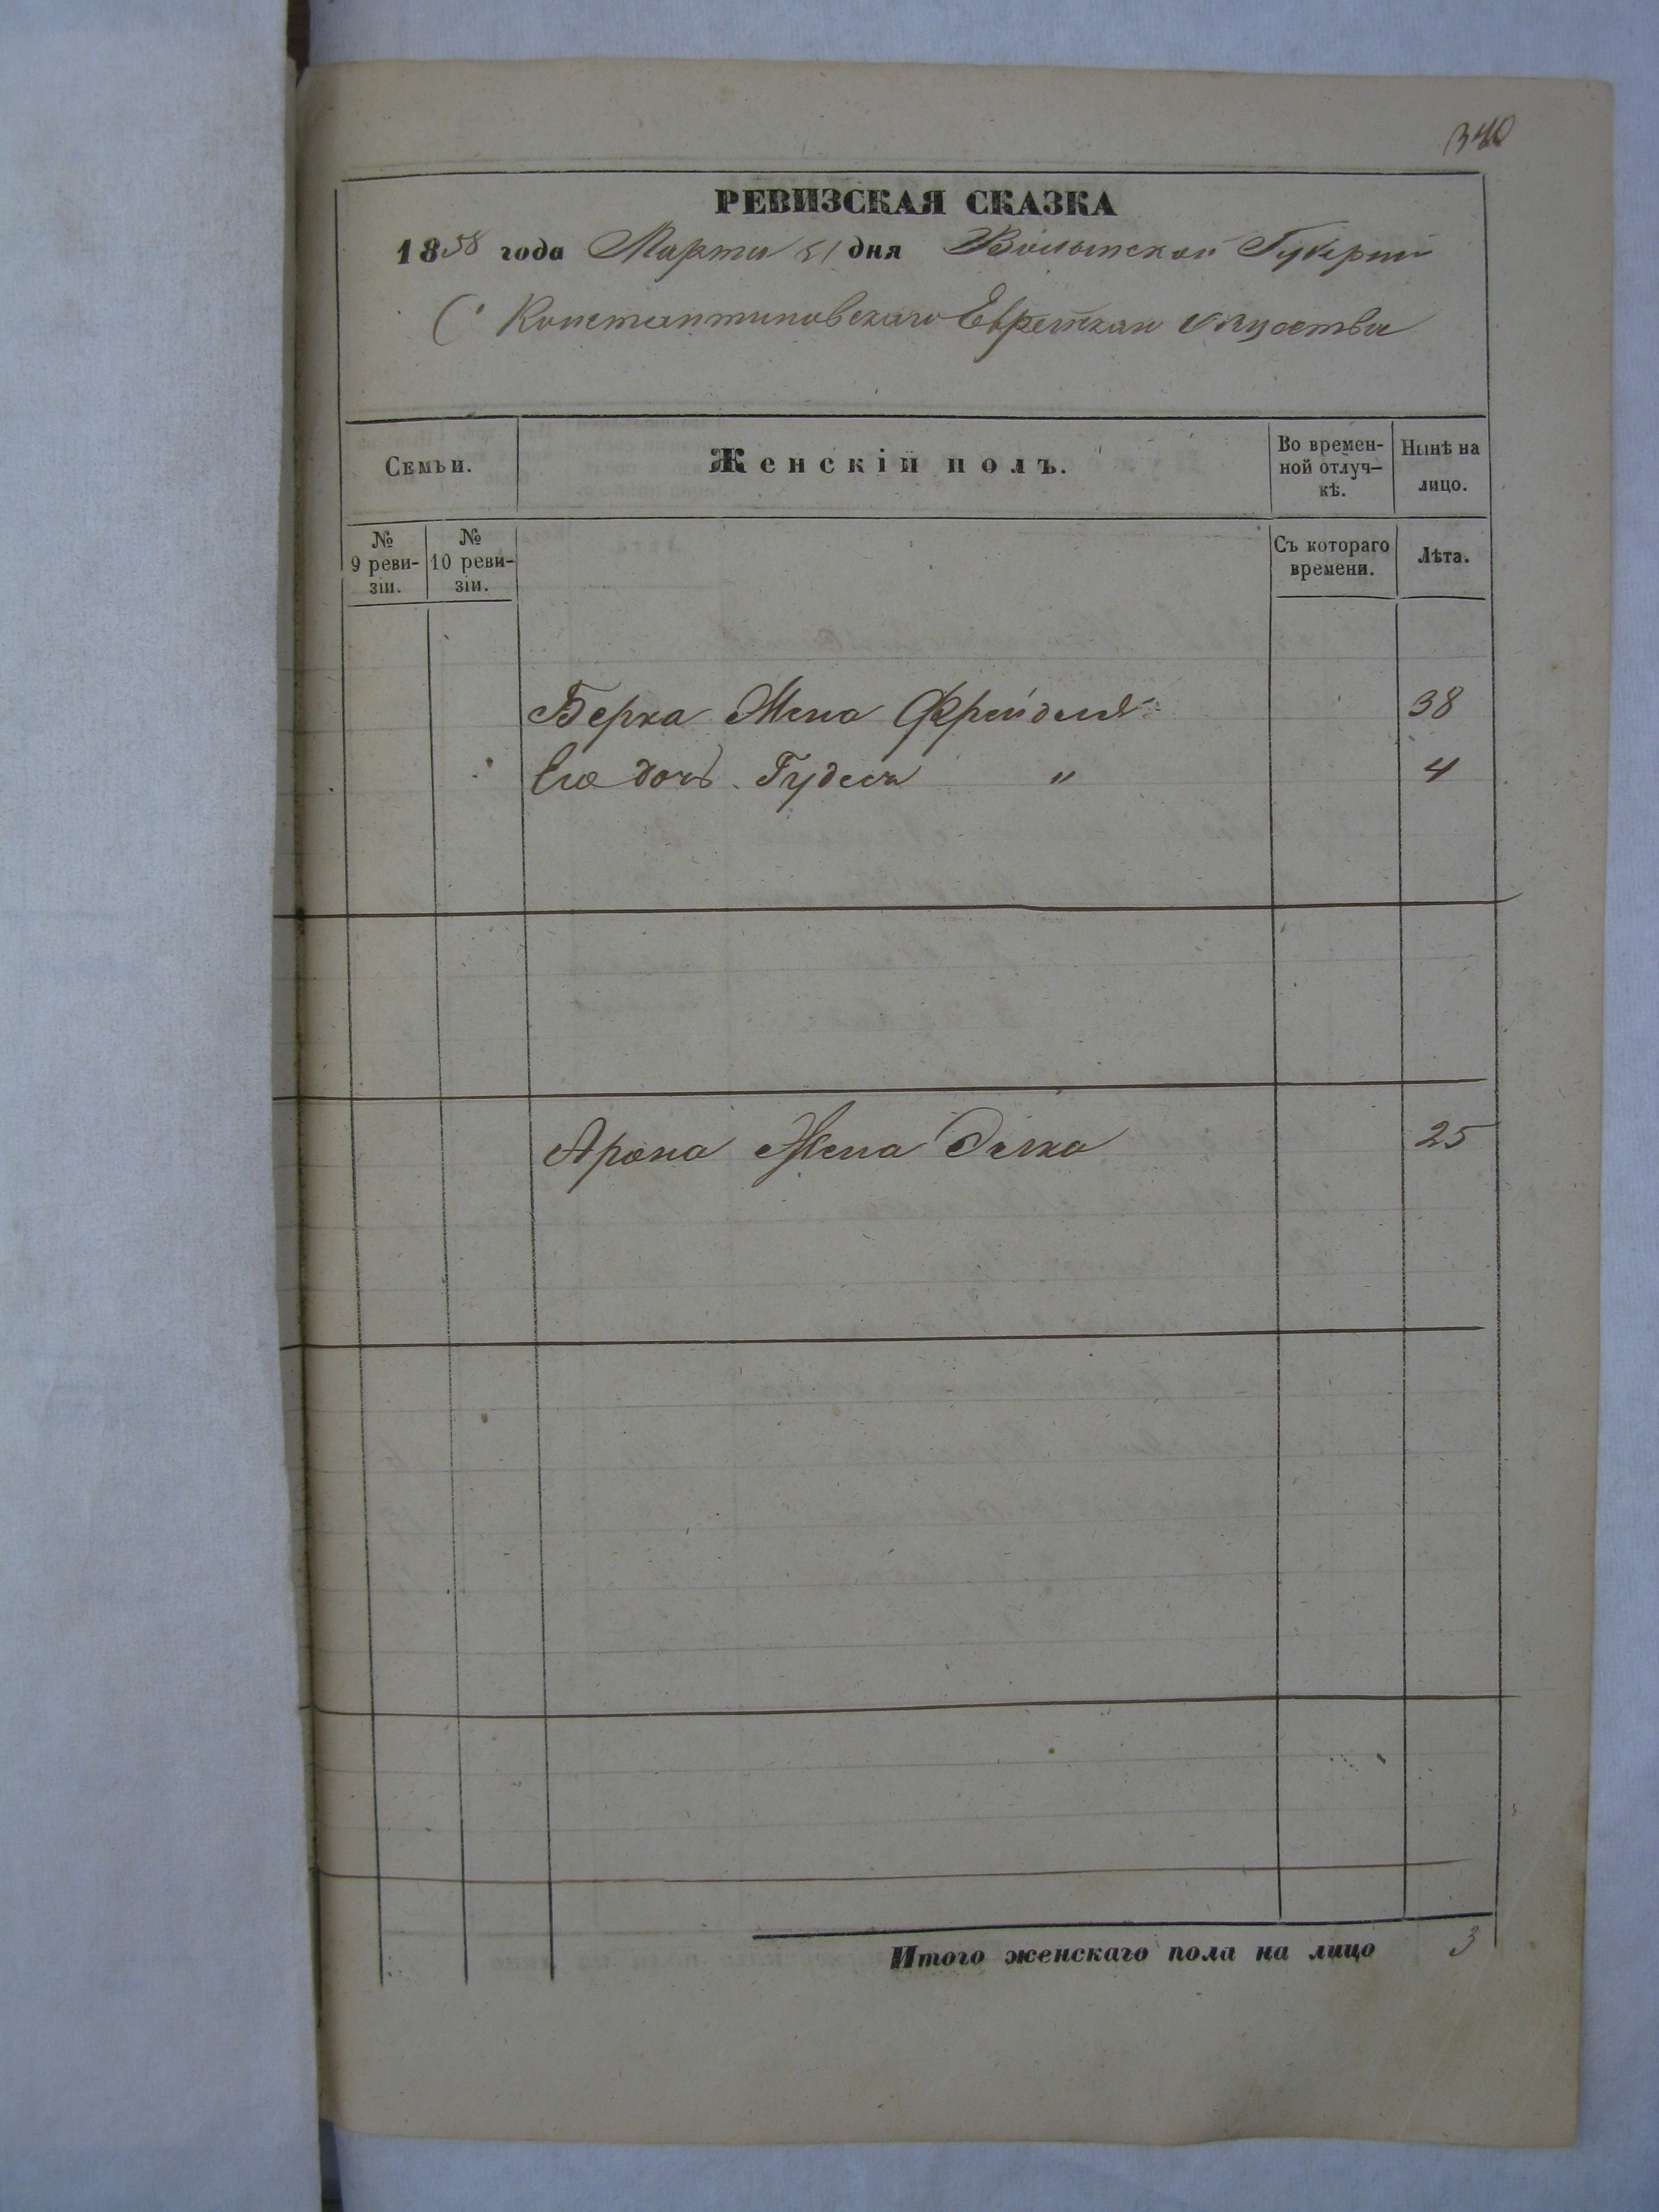 340
РЕВИЗСКАЯ СКАЗКА
1858 года Марта 31 дня Волынской Губерніи
С. Константиновскаго Еврейскаго общества
Семьи.
Женскій полъ.
Во времен-
ной отлуч-
кѣ.
Нынѣ на
лицо.
№
9 реви-
зіи.
№
10 реви-
зіи.
Съ котораго
времени.
Лѣта.
Берка Жена Фрейдля 38
Его дочь Гудля " 4
Арона Жена Элка 25
Итого женскаго пола на лицо 3